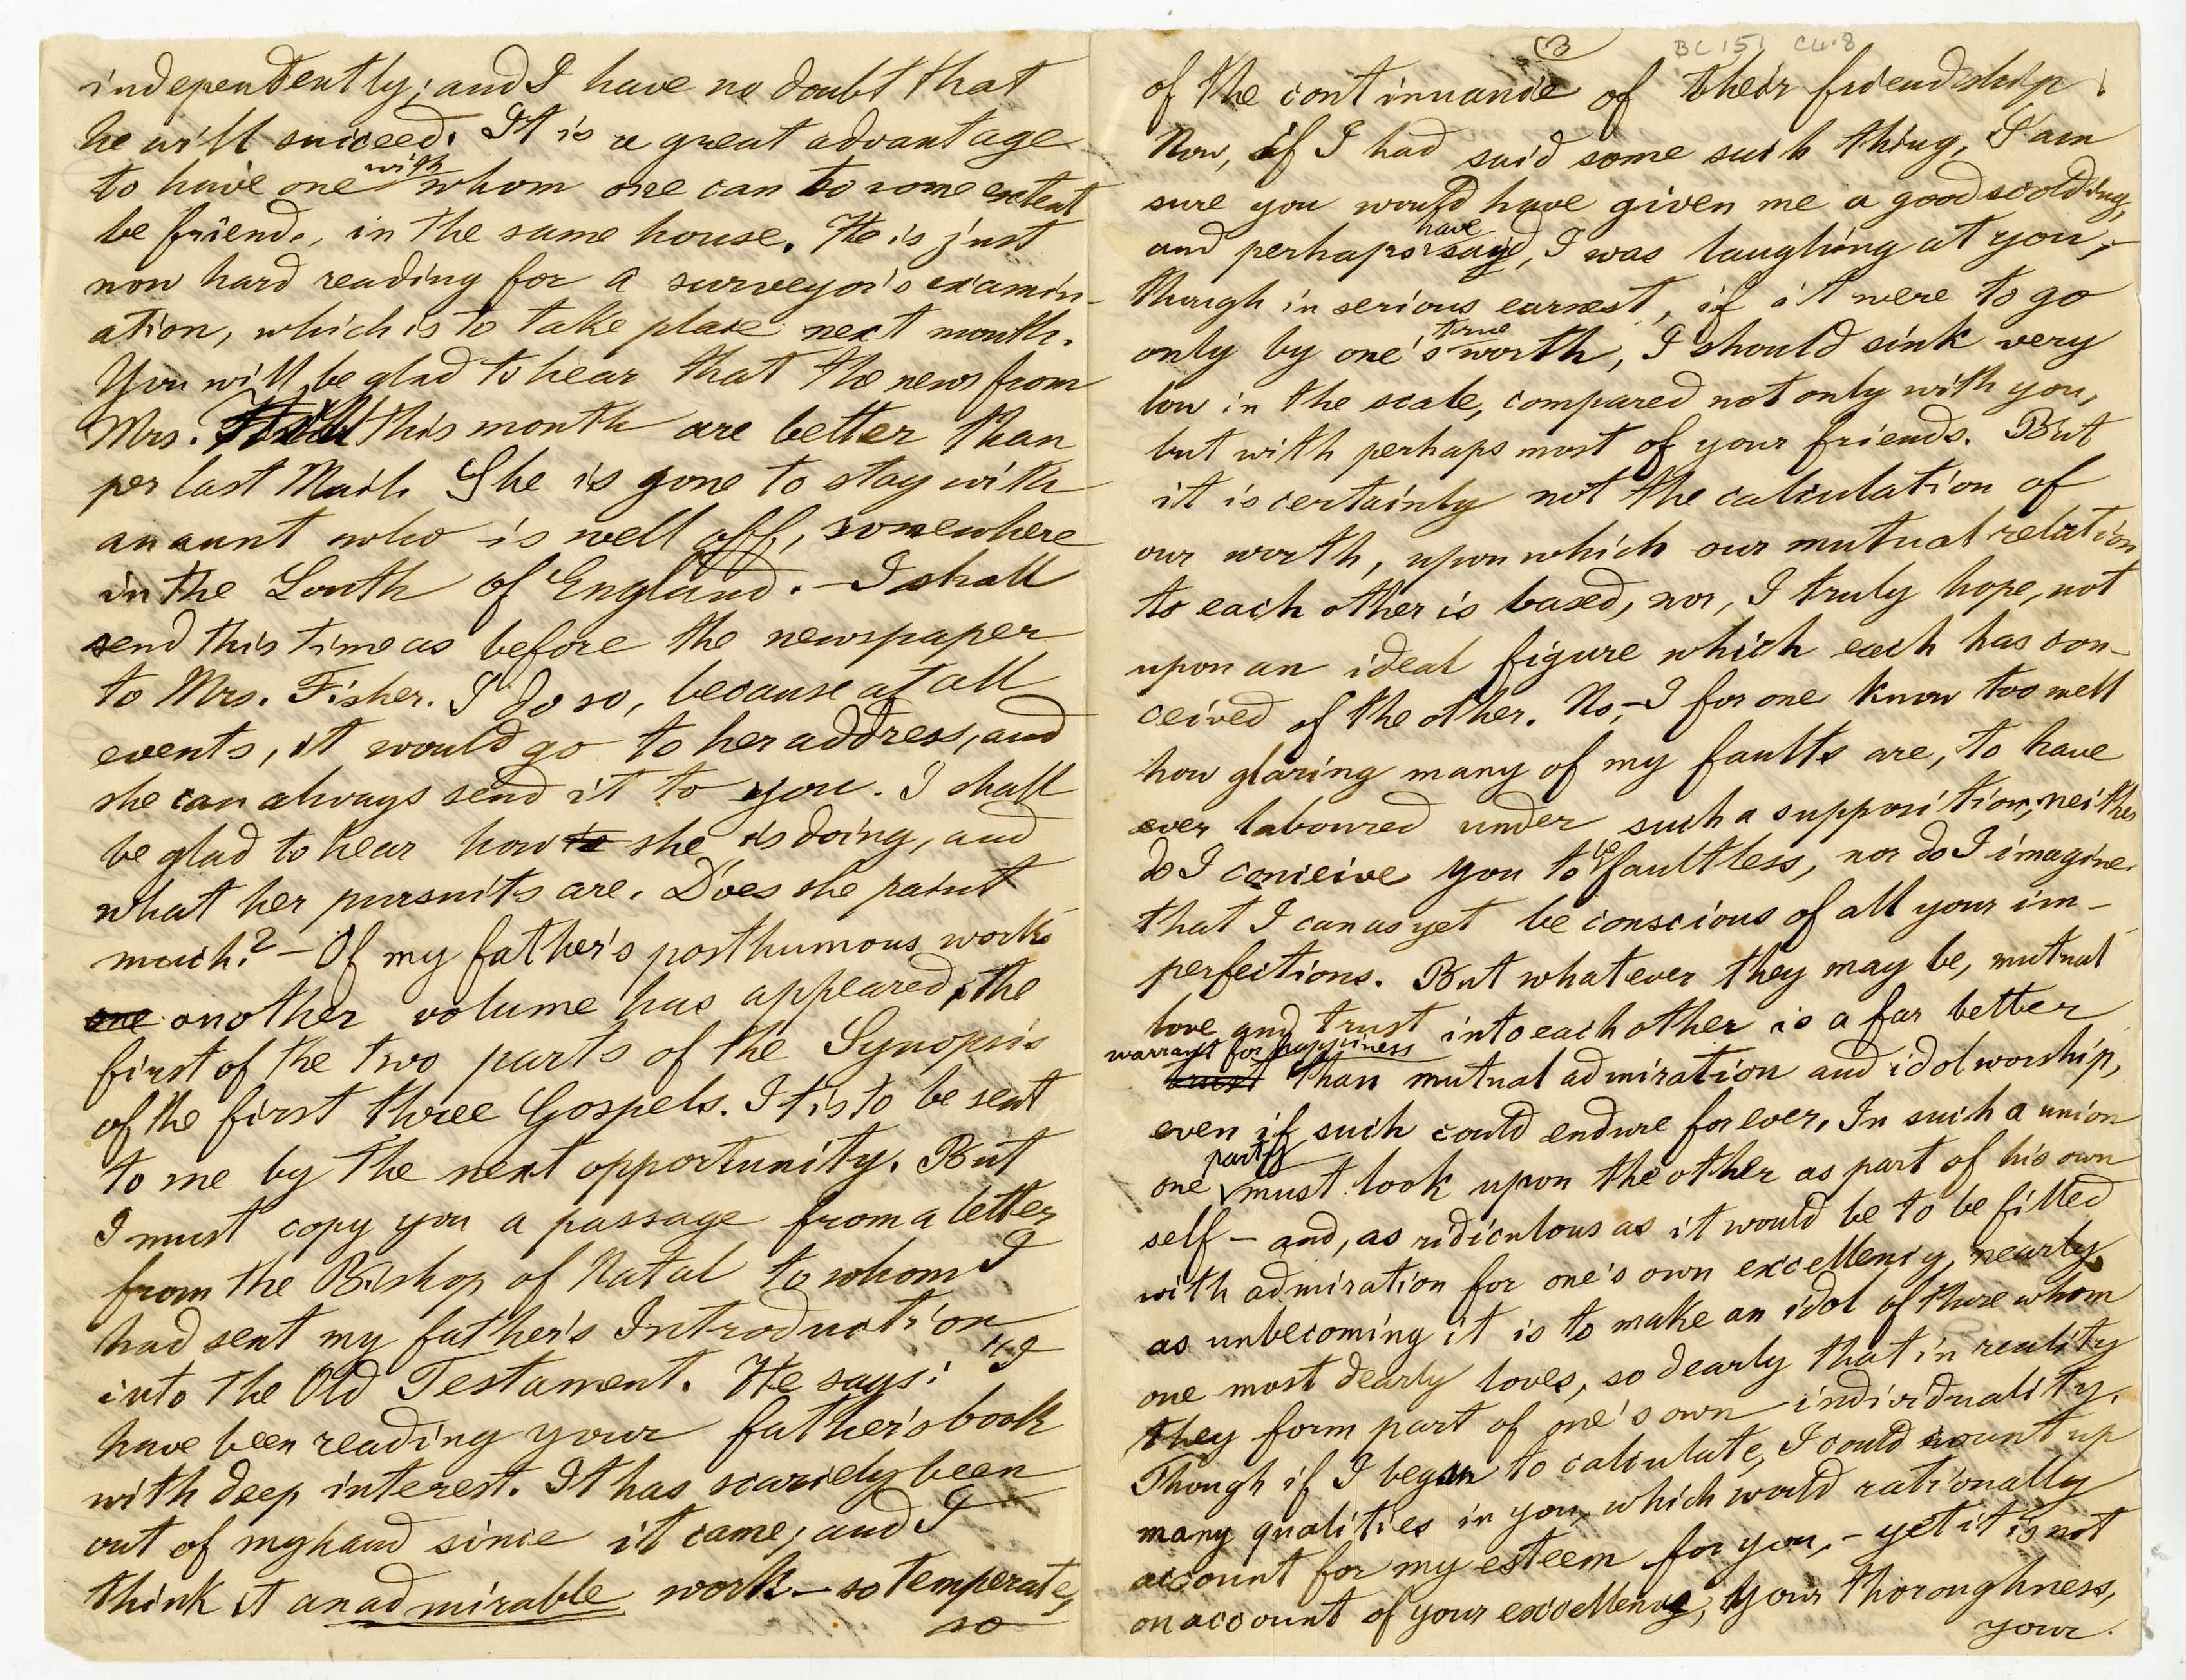 independently; and I have no doubt that
he will succeed. It is a great advantage
to have one with whom one can to some extent
be friend, in the same house. He is just
now hard reading for a surveyor's examin-
ation, which is to take place next month.
You will be glad to hear that the news from
Mrs. this month are better than
per last Mail. She is gone to stay with
an aunt who is well off, somewhere
in the South of England. – I shall
send this time as before the newspaper
to Mrs. Fisher. I do so, because at all
events, it would go to her address, and
she can always send it to you. I shall
be glad to hear how is she is doing, and
what her pursuits are. Does she paint
much? – Of my father's posthumous works
one another volume has appeared, the
first of the two parts of the Synopsis
of the first three Gospels. It is to be sent
to me by the next opportunity. But
I must copy you a passage from a letter
from the Bishop of Natal to whom I
had sent my father's Introduction
into the Old Testament. He says: "I
have been reading your father's book
with deep interest. It has scarcely been
out of my hand since it came; and I
think it an admirable work – so temperate,
so
(3
BC 151 C4.8
of the continuance of their friendship.
Now, if I had said some such thing, I am
sure you would have given me a good scolding,
and perhaps have said, I was laughing at you, –
though in serious earnest, if it were to go
only by one's true worth, I should sink very
low in the scale, compared not only with you,
but with perhaps most of your friends. But
it is certainly not the calculation of
our worth, upon which our mutual relation
to each other is based, nor, I truly hope, not
upon an ideal figure which each has con-
ceived of the other. No, – I for one know too well
how glaring many of my faults are, to have
ever laboured under such a supposition, neither
do I conceive you to be faultless, nor do I imagine
that I can as yet be conscious of all your im-
perfections. But whatever they may be, mutual
love and trust into each other is a far better
warrant for happiness than mutual admiration and idol worship,
even if such could endure for ever. In such a union
one party must look upon the other as part of his own
self – and, as ridiculous as it would be to be filled
with admiration for one's own excellency, nearly
as unbecoming it is to make an idol of those whom
one most dearly loves, so dearly that in reality
they form part of one's own individuality.
Though if I began to calculate, I could count up
many qualities in you, which would rationally
account for my esteem for you, – yet it is not
on account of your excellency, your thoroughness,
your